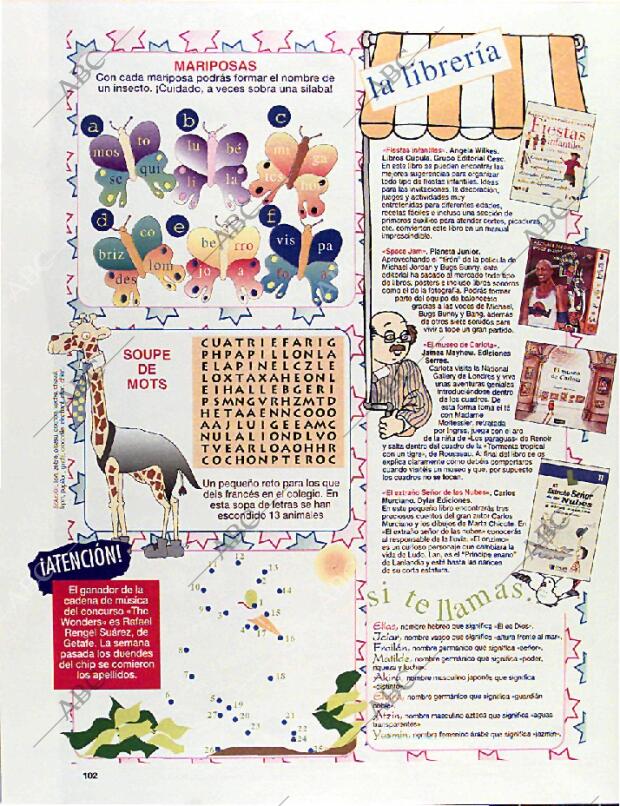 MARIPOSAS
Con cada mariposa podrás formar el nombre de
un insecto. ¡Cuidado, a veces sobra una sílaba!
a
mos
to
se
qui
b
lu
bé
li
la
c
mi
ga
ho
d
briz
co
des
lom
e
be
rro
jo
a
f
vis
pa
a
SOUPE
DE
MOTS
CUATRIEFARIG
PHPAPILLONLA
ELAPINELCZLE
LOXTAXAHEONL
PIHALLEBGERI
PSMNGVRHZMTD
HETAAENNCOOO
AAJLUIGEEAMC
NULALIONDLVO
TVEARLOAOHHR
COCHONPTEROC
Un pequeño reto para los que
deis francés en el colegio. En
esta sopa de letras se han
escondido 13 animales
¡ATENCIÓN!
El ganador de la
cadena de música
del concurso «The
Wonders» es Rafael
Rengel Suárez, de
Getafe. La semana
pasada los duendes
del chip se comieron
los apellidos.
102
la librería
Fiestas
infantiles
«Fiestas infantiles». Angela Wilkes.
Libros Cúpula. Grupo Editorial Ceac.
En este libro se pueden encontrar las
mejores sugerencias para organizar
todo tipo de fiestas infantiles. Ideas
para las invitaciones, la decoración,
juegos y actividades muy
entretenidas para diferentes edades,
recetas fáciles e incluso una sección de
primeros auxilios para atender cortes, picaduras,
etc. convierten este libro en un manual
imprescindible.
«Space Jam». Planeta Junior.
Aprovechando el «tirón» de la película de
Michael Jordan y Bugs Bunny, esta
editorial ha sacado al mercado todo tipo
de libros, posters e incluso libros sonoros
como el de la fotografía. Podrás formar
parte del equipo de baloncesto
gracias a las voces de Michael,
Bugs Bunny y Bang, además
de otros siete sonidos para
vivir a tope un gran partido.
«El museo de Carlota».
James Mayhew. Ediciones
Serres.
Carlota visita la National
Gallery de Londres y vive
unas aventuras geniales
introduciéndose dentro
de los cuadros. De
esta forma toma el té
con Madame
Moitessier, retratada
por Ingres, juega con el aro
de la niña de «Los paraguas» de Renoir
y salta dentro del cuadro de la «Tormenta tropical
con un tigre», de Rousseau. Al final del libro se os
explica claramente como debéis comportaros
cuando visitéis un museo y que, por supuesto
los cuadros no se tocan.
El museo
de Carlota
«El extraño Señor de las Nubes», Carlos
Murciano. Dylar Ediciones.
En este pequeño libro encontrarás tres
preciosos cuentos del gran autor Carlos
Murciano y los dibujos de Marta Chicote. En
«El extraño señor de las nubes» conocerás
al responsable de la lluvia. «El onzimo»
es un curioso personaje que cambiará la
vida de Ludo. Lan, es el "Príncipe enano"
de Lanlandia y está hasta las narices
de su corta estatura.
El
Extraño Señor
de las Nubes
si te llamas...
Elías, nombre hebreo que significa «Él es Dios».
Iciar, nombre vasco que significa «altura frente al mar».
Froilán, nombre germánico que significa «señor».
Matilde, nombre germánico que significa «poder,
riqueza y lucha».
Akira, nombre masculino japonés que significa
«distinto».
nombre germánico que significa «guardián
noble».
Atzin, nombre masculino azteca que significa «aguas
transparentes»
Yasmin, nombre femenino árabe que significa «jazmín».